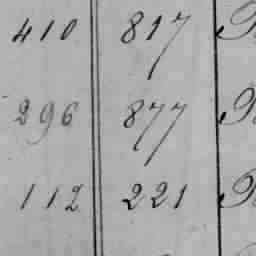 410 817
296 877
112 221